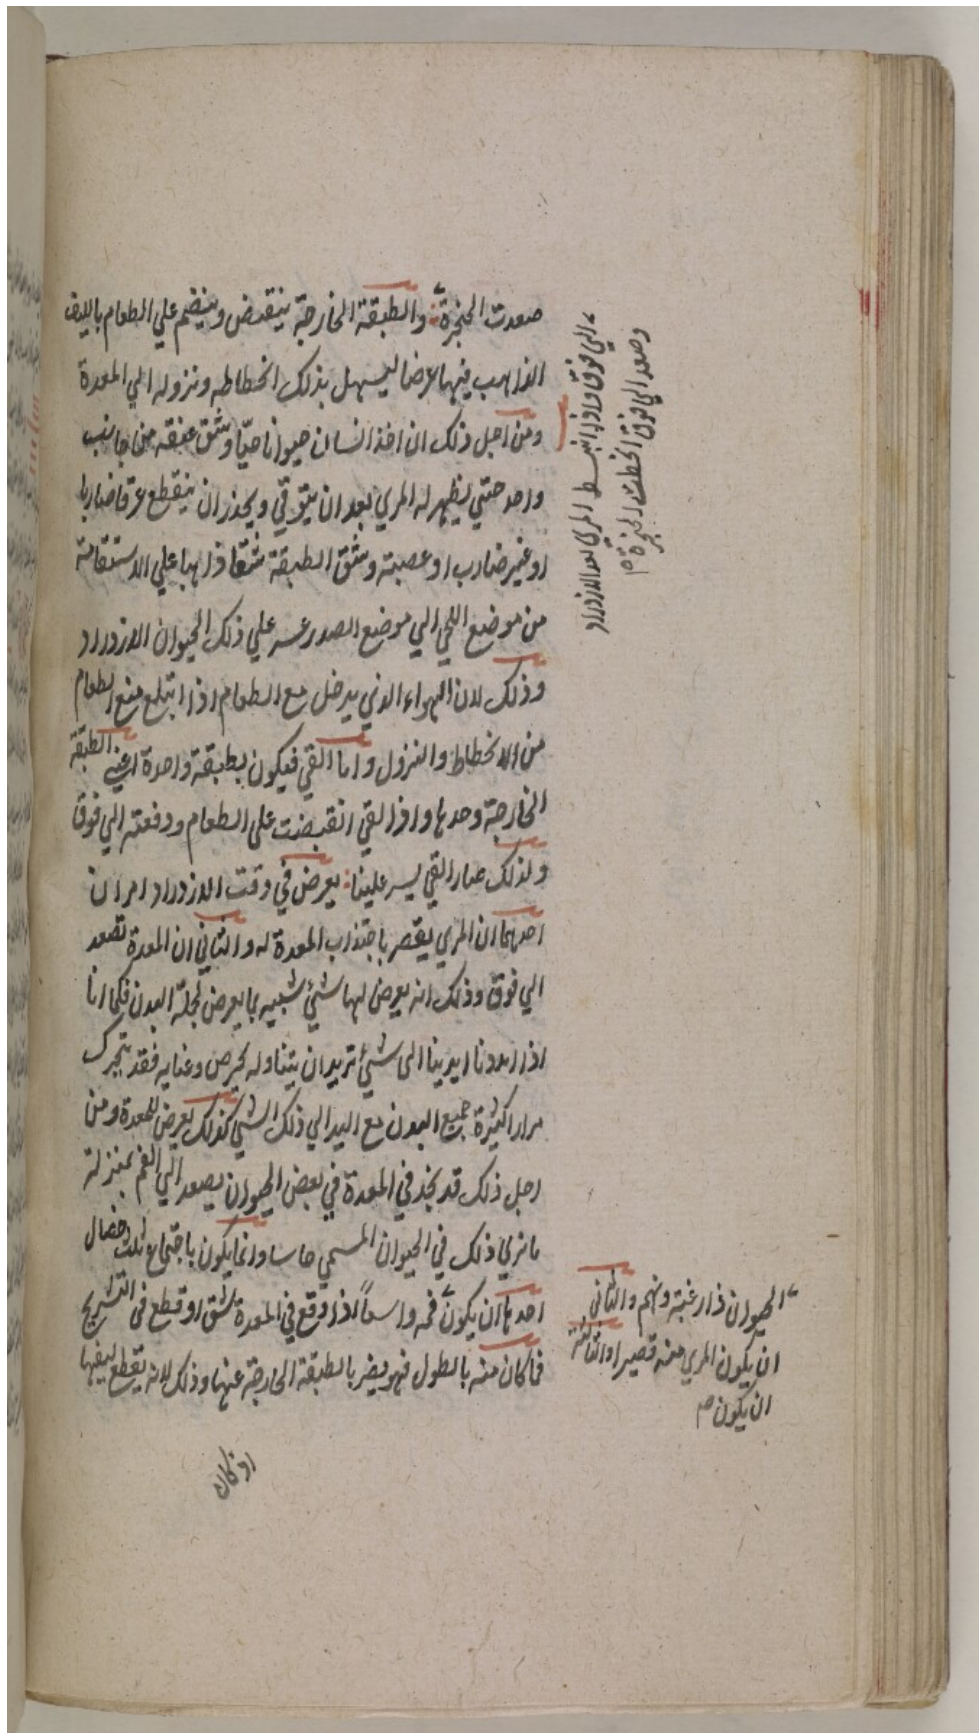 صعدت الحنجرة والطبقة الخارجة ينقبض وينضم علي الطعام بالليف
الذاهب فيها عرضا ليسهل بذلك انحطاطه ونزوله الي المعدة
ومن اجل ذلك ان اخذ انسان حيوانا حيّا وشق عنقه من جانب
واحد حتي يظهر له المري بعد ان يتوقي ويحذر ان ينقطع عرقا ضاربا
او غير ضارب او عصبته وشق الطبقة شقا ذاهبا علي الاستقامة
من موضع اللحي الي موضع الصدر عسر علي ذلك الحيوان الازدراد
وذلك لان الهواء الذي يدخل مع الطعام اذا ابتلع منع الطعام
من الانحطاط والنزول واما القي فيكون بطبقة واحدة اعني الطبقة
الخارجة وحدها واذا القي انقبضت علي الطعام ودفعته الي فوق
ولذلك صار القي يسر علينا يعرض في وقت الازدراد امران
احدهما ان المري يقصر باجتذاب المعدة له والثاني ان المعدة تصعد
الي فوق وذلك انه يعرض لها شيئ شبيه بما يعرض لجملة البدن فكما انا
اذا مددنا ايدينا الي شيئ تريد ان يتناوله بحرص وعنايه فقد يتحرك
مرارا كثيرة جميع البدن مع اليد الي ذلك الشيئ كذلك يعرض للمعدة ومن
اجل ذلك قد نجد في المعدة في بعض الحيوان يصعد الي الفم بمنزلة
ما نري ذلك في الحيوان المسمي حاسا وانما يكون باجتماع ثلث خصال
احدها ان يكون فمه واسعاً اذا وقع في المعدة شق او قطع في التشريح
فما كان منه بالطول فهو يضر بالطبقة الخارجة عنها وذلك لانه يقطع ليفها
اذ كان
الي فوق واذا انبسط المري بعد الازدراد
وصعد الي فوق انحطت الحنجرة
الحيوان ذا رغبة ونهم والثاني
ان يكون المري منه قصيرا والثالثة
ان يكون